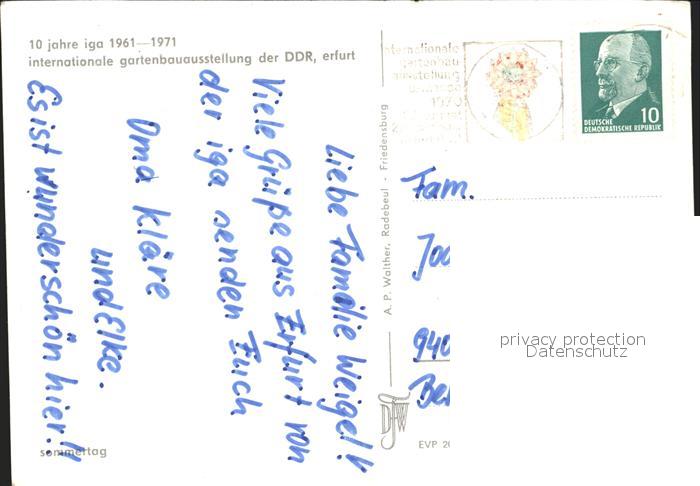 10 jahre iga 1961—1971
internationale gartenbauausstellung der DDR, erfurt
Liebe Familie Weigel!
Viele Grüße aus Erfurt von
der iga senden Euch
Oma Kläre
und Elke.
Es ist wunderschön hier!!
sommertag
A. P. Walther, Radebeul - Friedensburg
internationale
gartenbau
ausstellung
1970
10
DEUTSCHE
DEMOKRATISCHE REPUBLIK
Fam.
940
privacy protection
Datenschutz
EVP 20